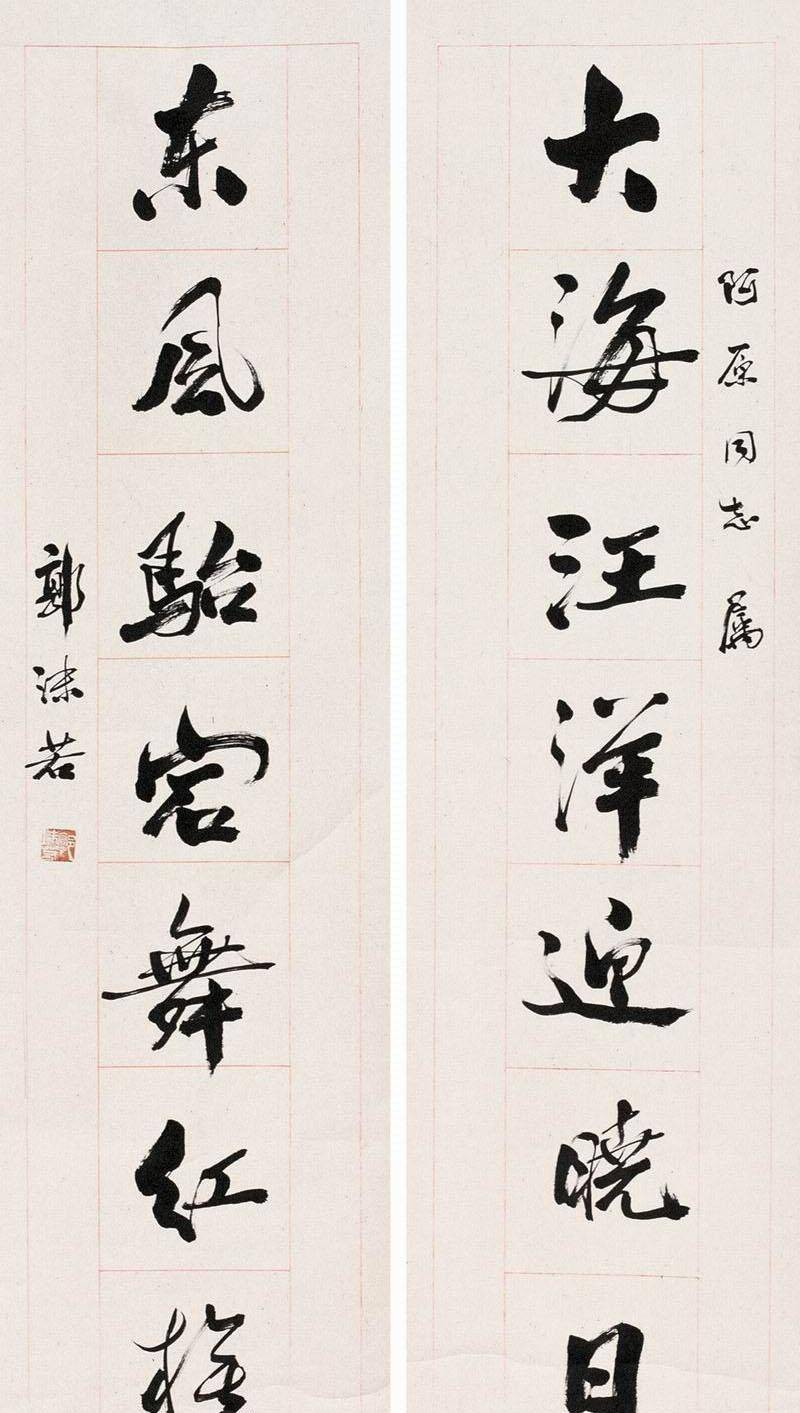 阿原同志 属
大海汪洋迎晓日
东風駘宕舞红
郭沫若